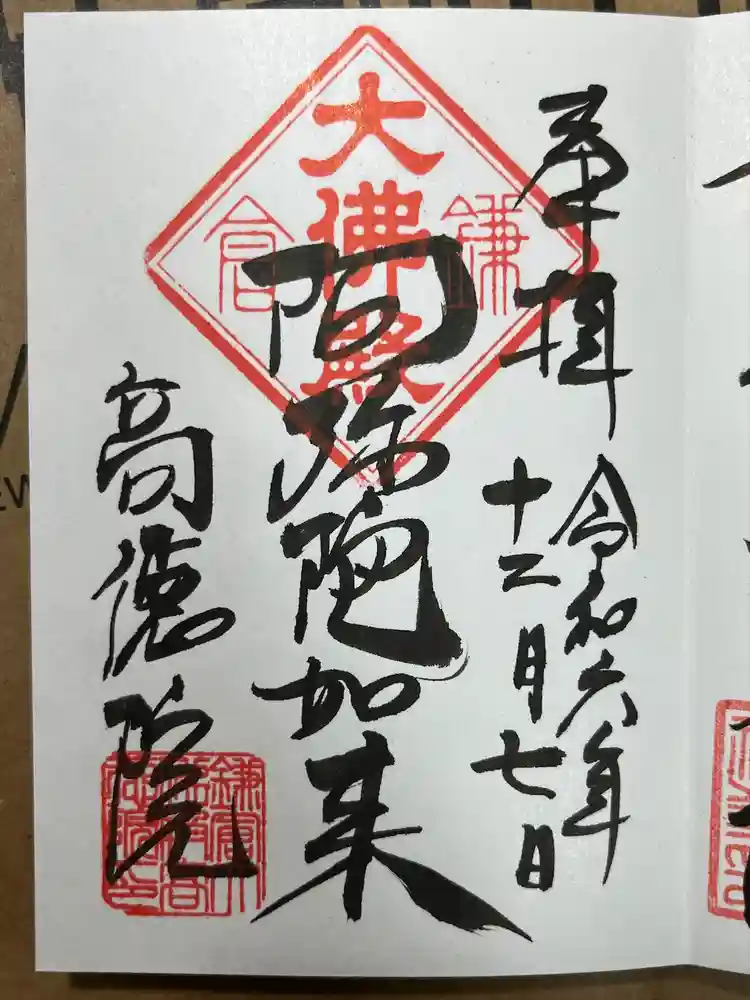 奉拝
令和六年
十二月七日
大佛殿
鎌倉
阿弥陀如来
高徳院